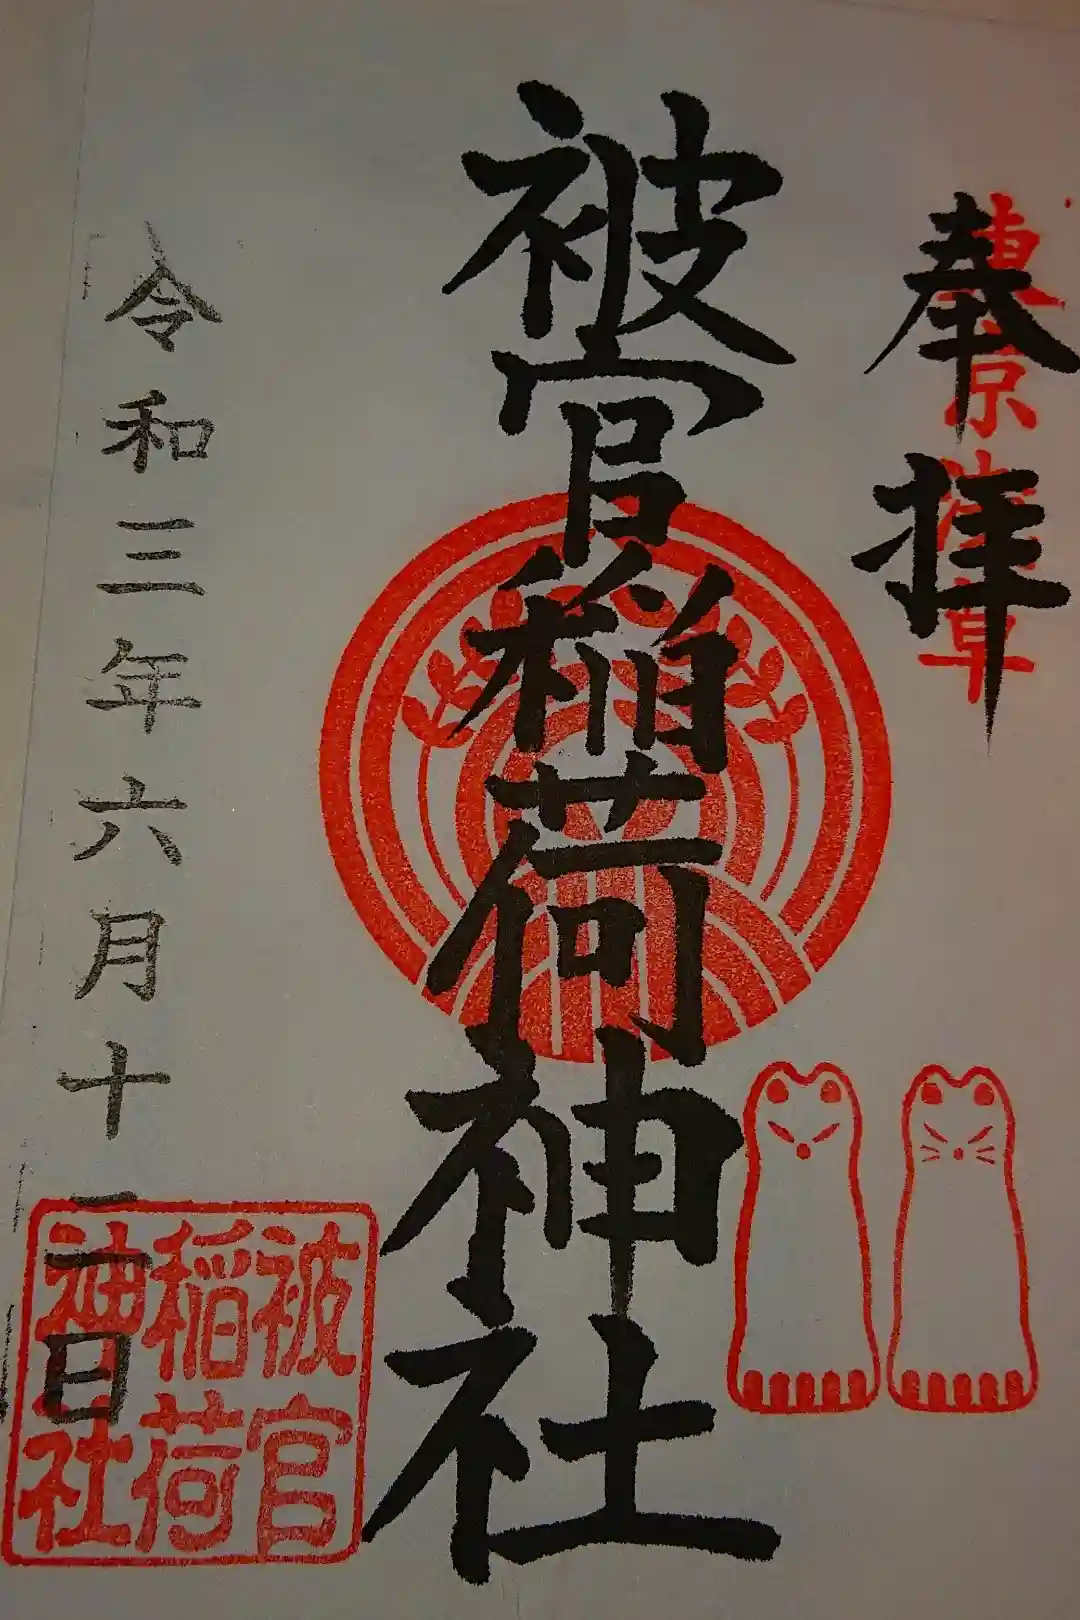 奉拝
東京浅草
被官稲荷神社
令和三年六月十二日
被官
稲荷
神社